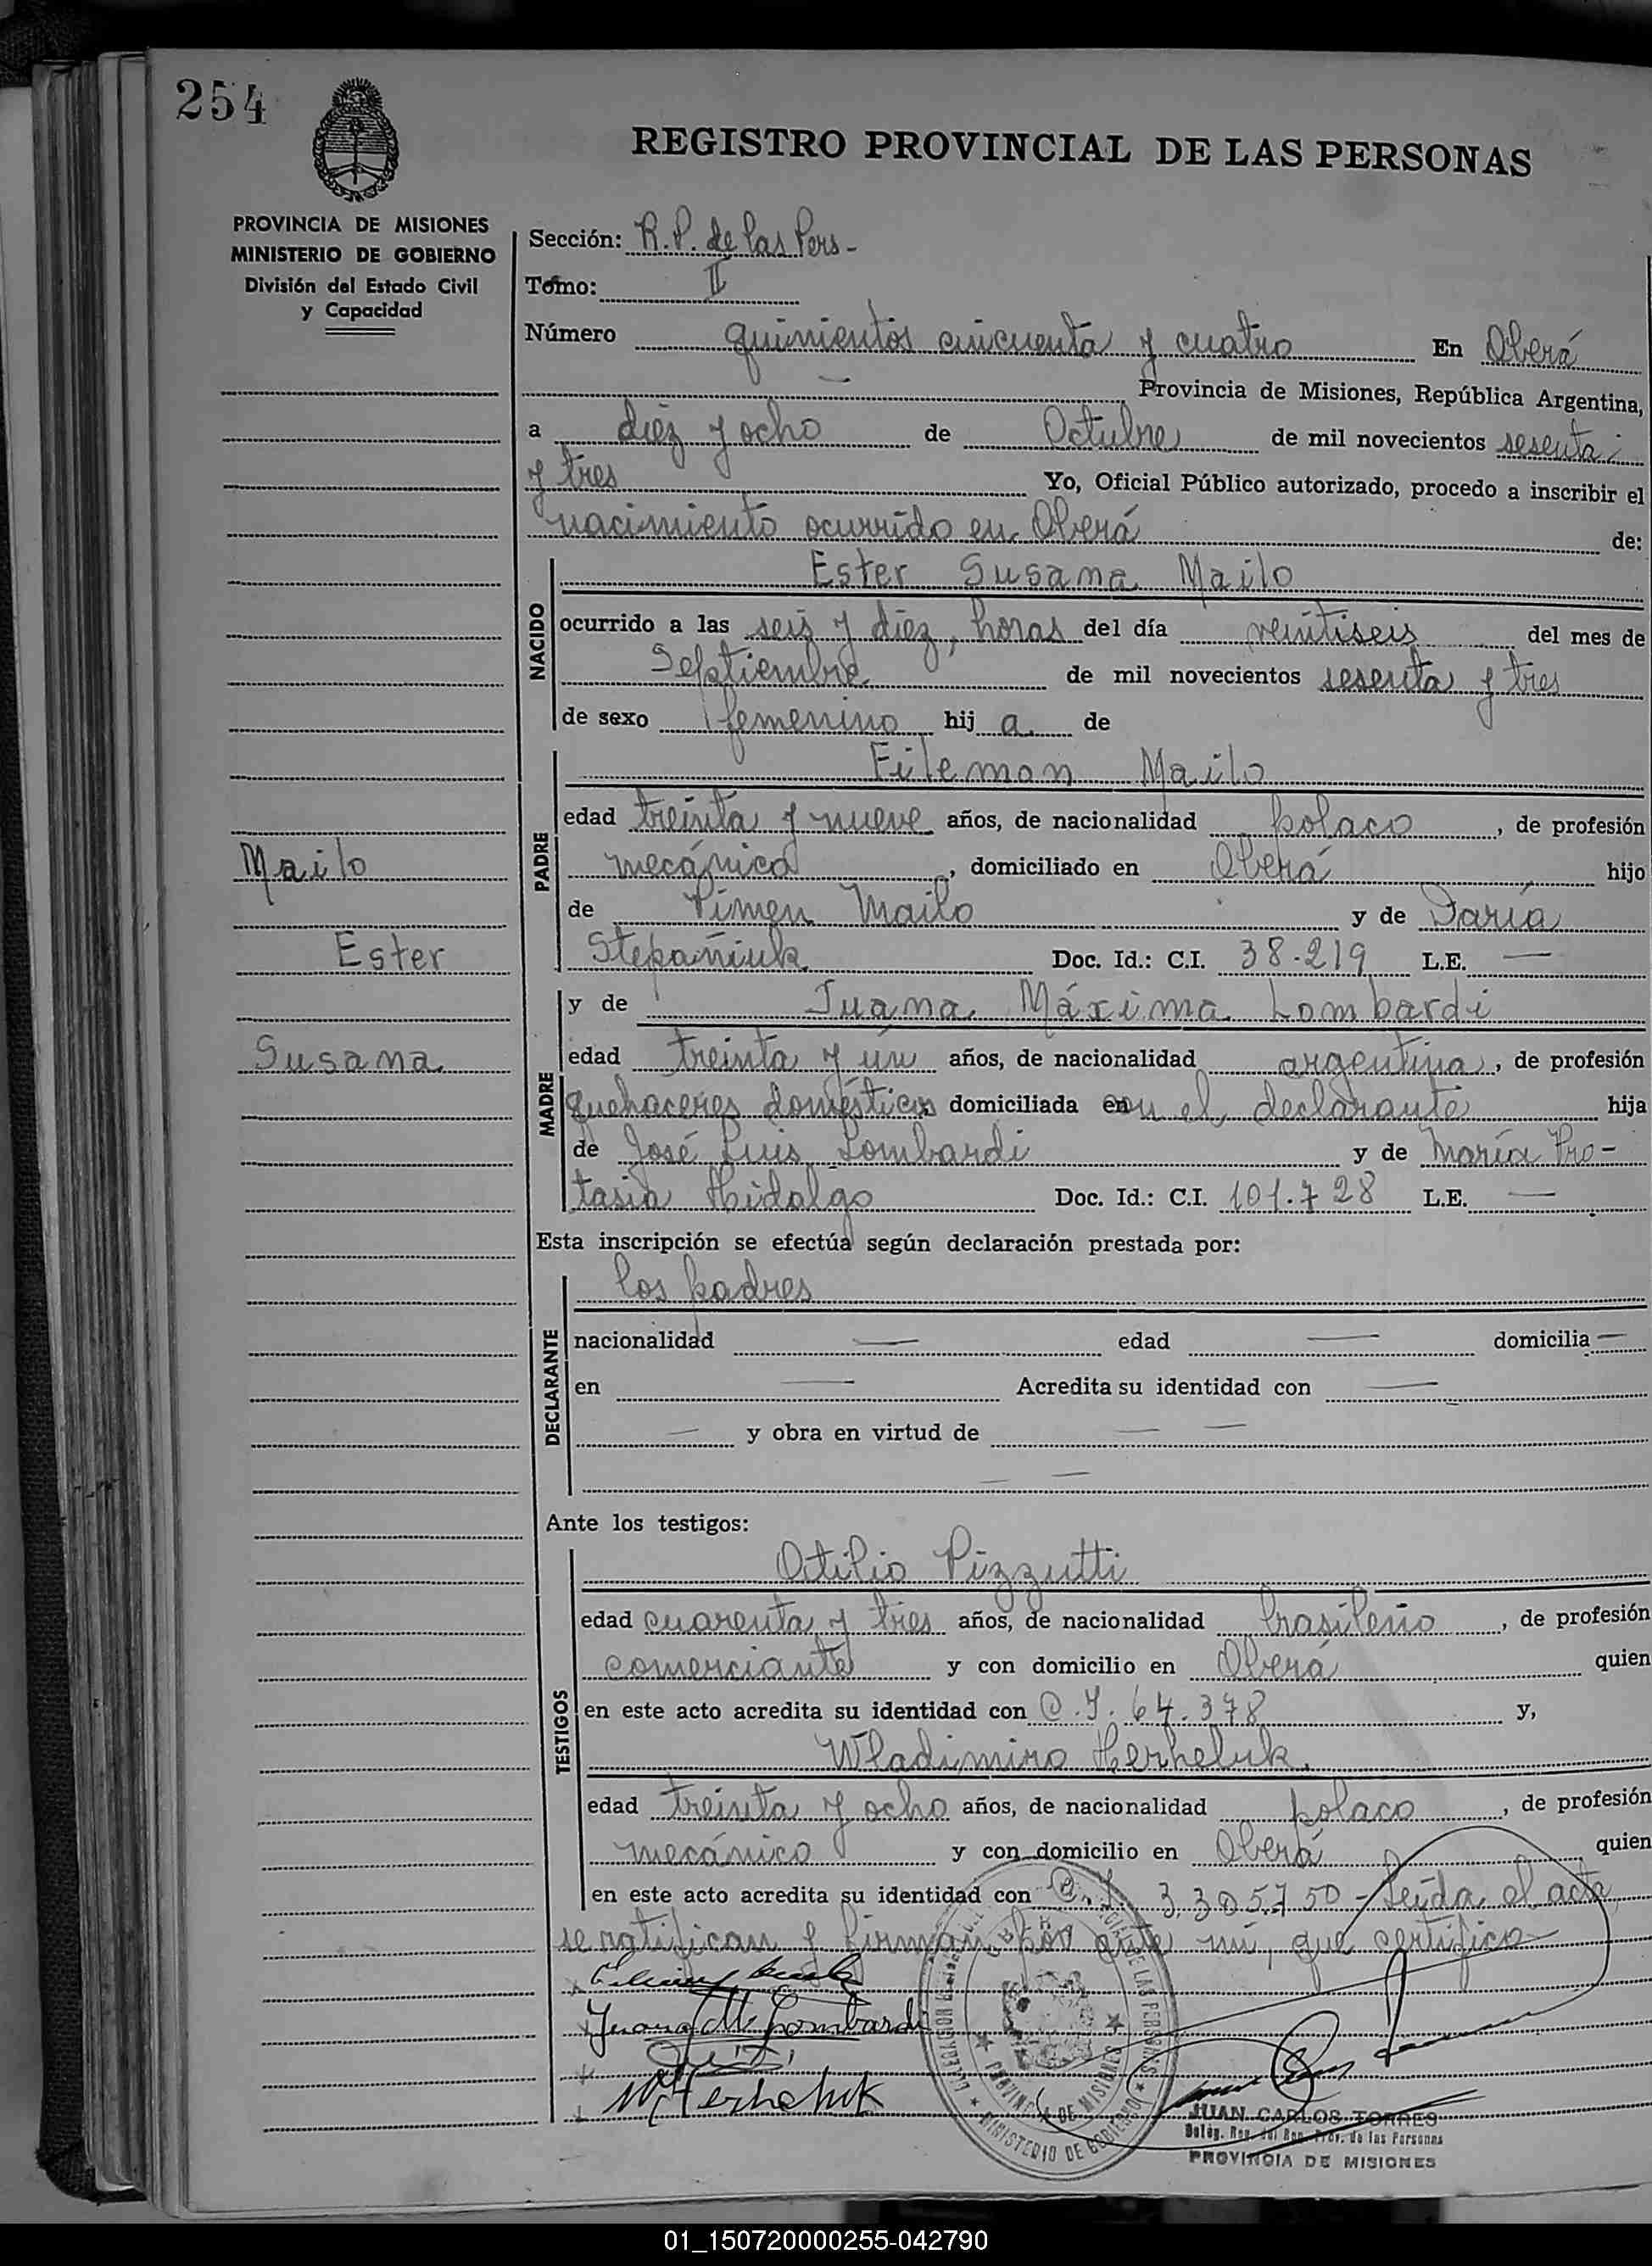 254
REGISTRO PROVINCIAL DE LAS PERSONAS
PROVINCIA DE MISIONES
MINISTERIO DE GOBIERNO
División del Estado Civil
y Capacidad
Sección: R.P. de las Pers-
Tomo: II
Número quinientos cincuenta y cuatro En Oberá
Provincia de Misiones, República Argentina,
a diez y ocho de Octubre de mil novecientos sesenta
y tres Yo, Oficial Público autorizado, procedo a inscribir el
nacimiento ocurrido en Oberá de:
NACIDO
Ester Susana Mailo
ocurrido a las seis y diez, horas del día veintiseis del mes de
Septiembre de mil novecientos sesenta y tres
de sexo femenino hij a de
PADRE
Filemon Mailo
edad treinta y nueve años, de nacionalidad polaco, de profesión
mecánico, domiciliado en Oberá hijo
de Pimen Mailo y de Daria
Stepañiuk Doc. Id.: C.I. 38.219 L.E. —
Mailo
Ester
Susana
MADRE
y de Juana Máxima Lombardi
edad treinta y un años, de nacionalidad argentina, de profesión
quehaceres domésticos domiciliada en con el declarante hija
de José Luis Lombardi y de María Pro-
tasia Hidalgo Doc. Id.: C.I. 101.728 L.E. —
Esta inscripción se efectúa según declaración prestada por:
DECLARANTE
los padres
nacionalidad — edad — domicilia —
en — Acredita su identidad con —
— y obra en virtud de — —
— —
Ante los testigos:
TESTIGOS
Otilio Pizzutti
edad cuarenta y tres años, de nacionalidad brasileño, de profesión
comerciante y con domicilio en Oberá quien
en este acto acredita su identidad con C.I. 64.378 y,
Wladimiro Herheluk
edad treinta y ocho años, de nacionalidad polaco, de profesión
mecánico y con domicilio en Oberá quien
en este acto acredita su identidad con C.I. 3.305.750 - Leída el acta
se ratifican y firman por ante mí, que certifico
Juana M. Lombardi
W. Herheluk
PROVINCIA DE MISIONES
MINISTERIO DE GOBIERNO
JUAN CARLOS TORRES
Deleg. Reg. del Reg. Prov. de las Personas
PROVINCIA DE MISIONES
01_150720000255-042790